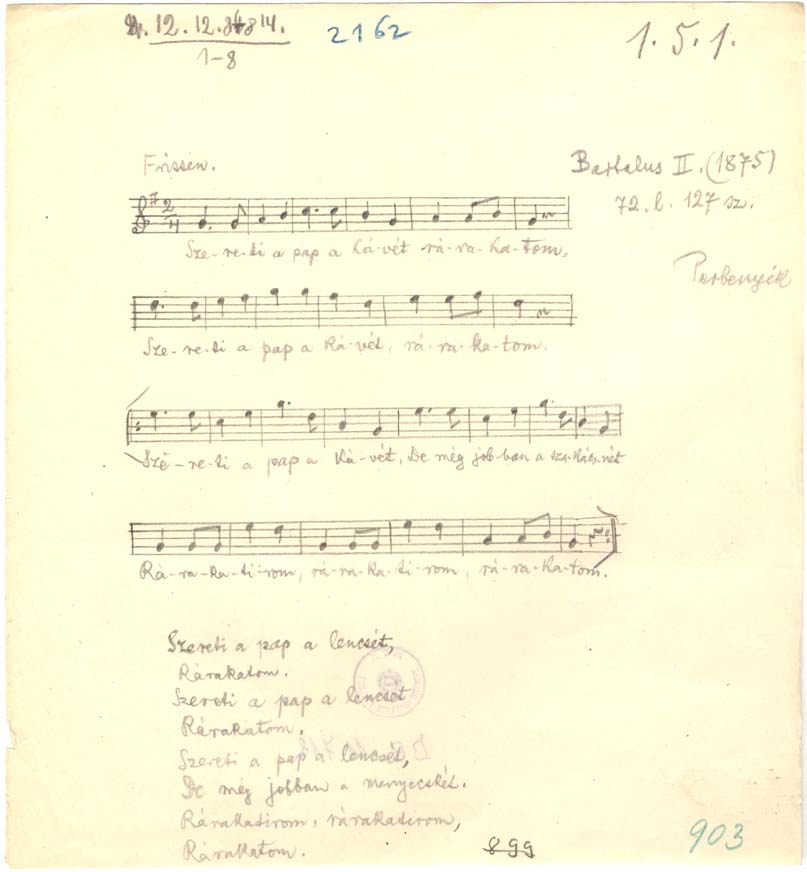 12. 12. 8 14.
1-8
2162
1. 5. 1.
Frissen.
Bartalus II. (1875)
72. l. 127 sz.
Perbenyik
2
4
Sze-re-ti a pap a ká-vét rá-ra-ka-tom,
Sze-re-ti a pap a ká-vét, rá-ra-ka-tom.
Sze-re-ti a pap a ká-vét, De még job-ban a sza-kács-nét
Rá-ra-ka-ti-rom, rá-ra-ka-ti-rom, rá-ra-ka-tom.
Szereti a pap a lencsét,
Rárakatom.
Szereti a pap a lencsét
Rárakatom.
Szereti a pap a lencsét,
De még jobban a menyecskét.
Rárakatirom, rárakatirom,
Rárakatom.
899
903